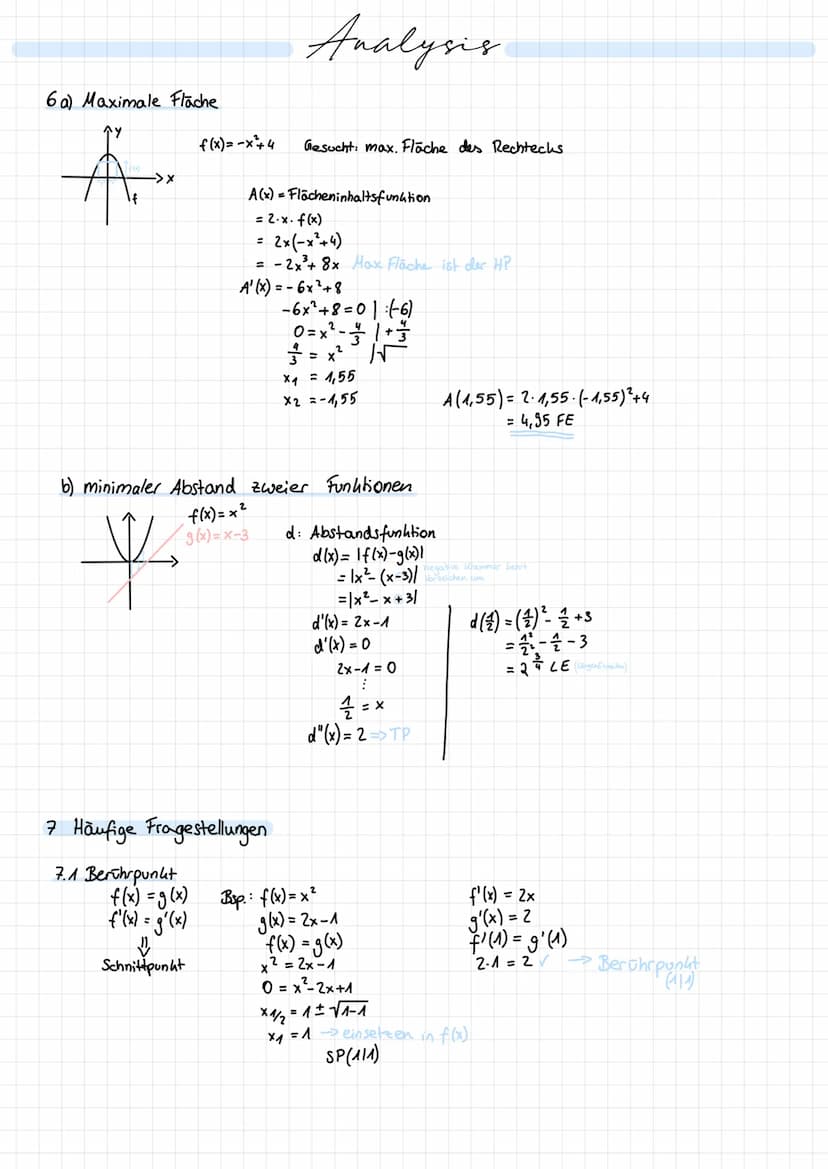 Analysis
6a) Maximale Fläche
y
x
f
f(x) = -x²+4 Gesucht: max. Fläche des Rechtecks
A(x) = Flächeninhaltsfunktion
= 2·x·f(x)
= 2x(-x²+4)
= -2x³+ 8x Max Fläche ist der HP
A'(x) = -6x²+8
-6x²+8=0 | :(-6)
0=x²-4/3 | +4/3
4/3 = x² |√
x1 = 1,55
x2 = -1,55
A(1,55) = 2·1,55·(-1,55)²+4
= 4,95 FE
b) minimaler Abstand zweier Funktionen
f(x)= x²
g(x)= x-3
d: Abstandsfunktion
d(x) = |f(x)-g(x)|
= |x²- (x-3)| negative Klammer dreht Vorzeichen um
=|x²- x+3|
d'(x) = 2x-1
d'(x) = 0
2x-1=0
⋮
1/2 = x
d"(x) = 2 => TP
d(1/2) = (1/2)²- 1/2 +3
= 1²/2² - 1/2 - 3
= 2 3/4 LE (Längeneinheiten)
7 Häufige Fragestellungen
7.1 Berührpunkt
f(x) = g(x)
f'(x) = g'(x)
⇓
Schnittpunkt
Bsp.: f(x)= x²
g(x) = 2x-1
f(x) = g(x)
x² = 2x-1
0 = x²-2x+1
x1/2 = 1 ± √1-1
x1 = 1 → einsetzen in f(x)
SP(1|1)
f'(x) = 2x
g'(x) = 2
f'(1) = g'(1)
2·1 = 2 ✓ → Berührpunkt
(1|1)